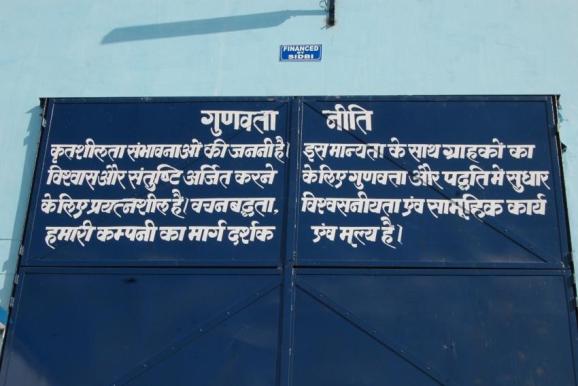 FINANCED
BY
SIDBI
गुणवता नीति
कृतशीलता संभावनाओं की जननी है। इस मान्यता के साथ ग्राहकों का
विश्वास और संतुष्टि अर्जित करने के लिए गुणवत्ता और पद्धति मे सुधार
के लिए प्रयत्नशील है। वचनबद्धता, विश्वसनीयता एंव सामूहिक कार्य
हमारी कम्पनी का मार्ग दर्शक एंव मूल्य है।